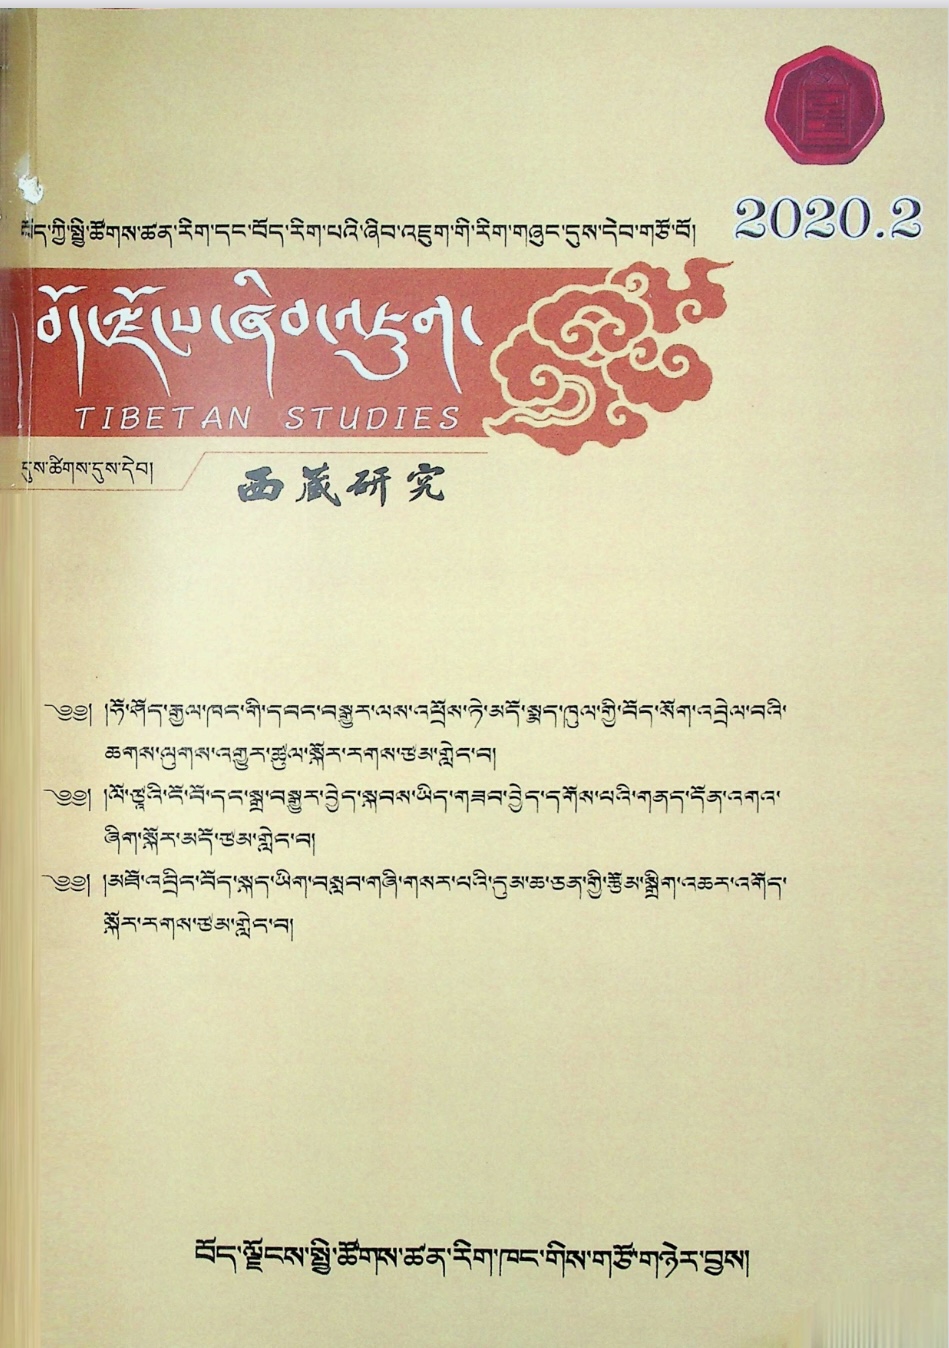 བོད་ཀྱི་སྤྱི་ཚོགས་ཚན་རིག་དང་བོད་རིག་པའི་ཞིབ་འཇུག་གི་རིག་གཞུང་དུས་དེབ་གཙོ་བོ།
2020.2
བོད་ལྗོངས་ཞིབ་འཇུག
TIBETAN STUDIES
དུས་ཚིགས་དུས་དེབ།
西藏研究
༄༅། །ཧོ་ཤོད་རྒྱལ་ཁང་གི་དབང་བསྒྱུར་ལས་འཕྲོས་ཏེ་མདོ་སྨད་ཁུལ་གྱི་བོད་སོག་འབྲེལ་བའི་
ཆགས་ལུགས་འགྱུར་ཚུལ་སྐོར་རགས་ཙམ་གླེང་བ།
༄༅། །ལོ་ཙཱའི་ངོ་བོ་དང་སྒྲ་བསྒྱུར་བྱེད་སྐབས་ཡིད་གཟབ་བྱེད་དགོས་པའི་གནད་དོན་འགའ་
ཞིག་སྐོར་མདོ་ཙམ་གླེང་བ།
༄༅། །མཐོ་འབྲིང་བོད་སྐད་ཡིག་བསླབ་གཞི་གསར་པའི་དུམ་ཆ་ཅན་གྱི་རྩོམ་སྒྲིག་འཆར་འགོད་
སྐོར་རགས་ཙམ་གླེང་བ།
བོད་ལྗོངས་སྤྱི་ཚོགས་ཚན་རིག་ཁང་གིས་གཙོ་གཉེར་བྱས།